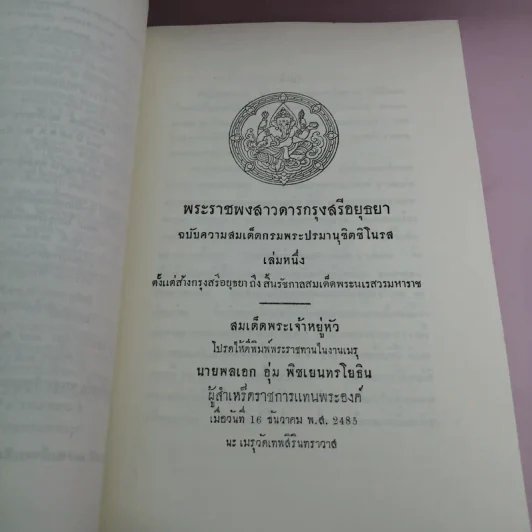 พระราชพงสาวดารกรุงสรีอยุธยา
ฉบับความสมเด็ดกรมพระปรมานุชิตชิโนรส
เล่มหนึ่ง
ตั้งแต่ส้างกรุงสรีอยุธยา ถึง สิ้นรัชกาลสมเด็ดพระนเรสวรมหาราช
สมเด็ดพระเจ้าหยู่หัว
โปรดไห้ตีพิมพ์พระราชทานในงานเมรุ
นายพลเอก อุ่ม พิชเยนทรโยธิน
ผู้สำเหร็ดราชการแทนพระองค์
เมื่อวันที่ 16 ธันวาคม พ.ส. 2485
นะ เมรุวัดเทพสิรินทราวาส